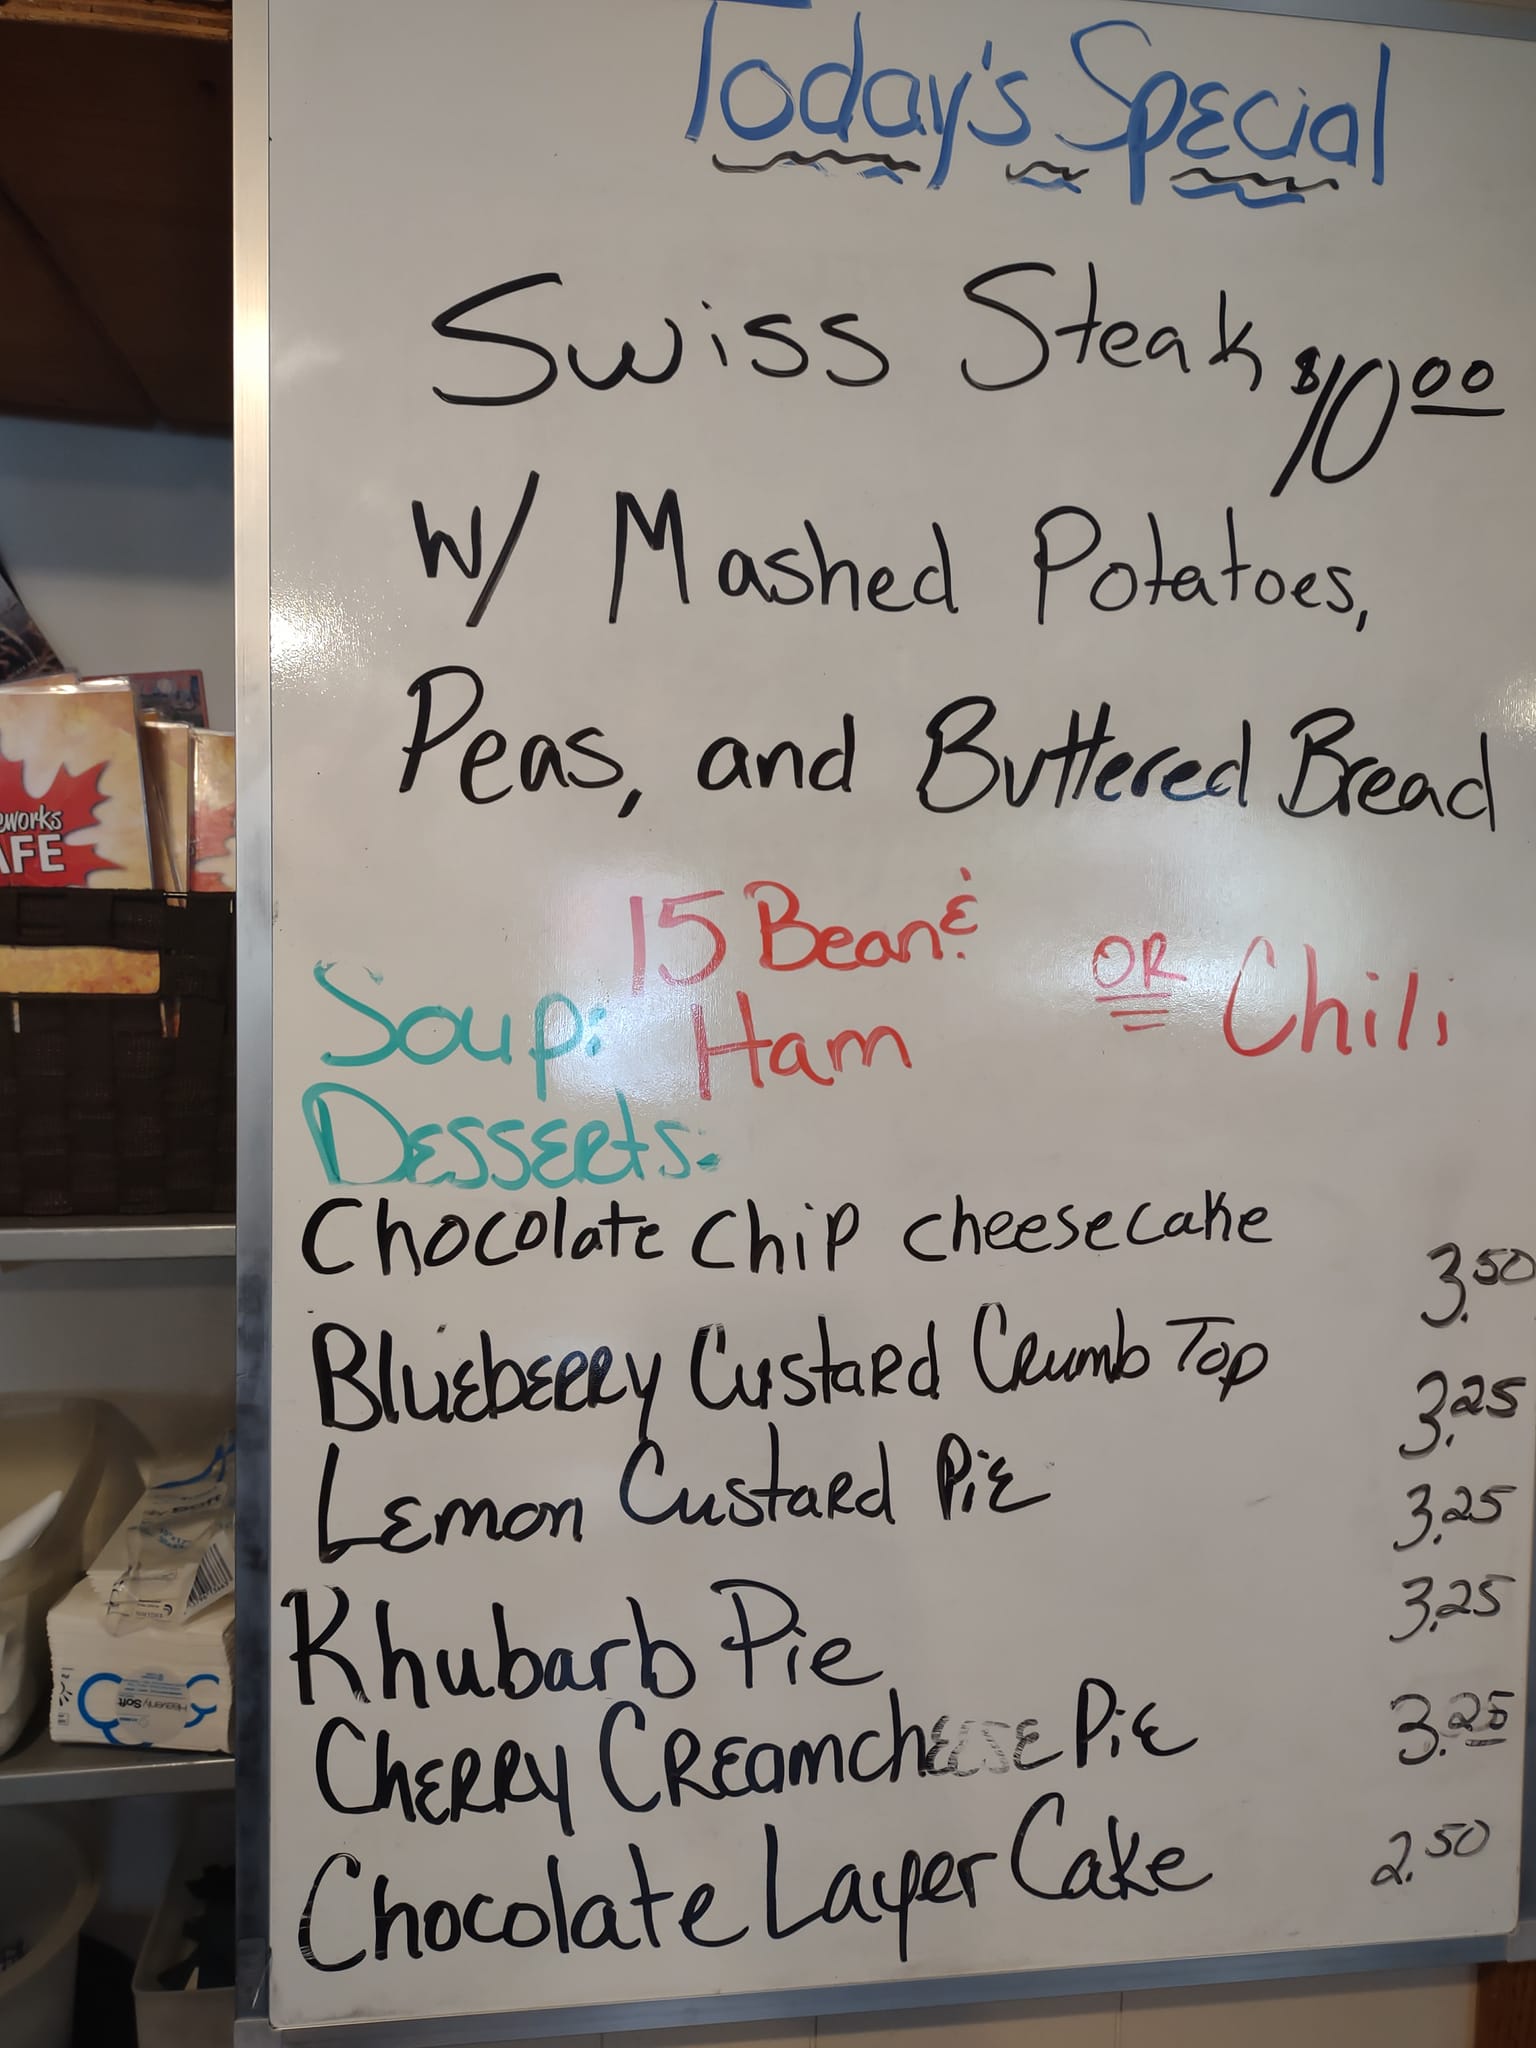 Today's Special
Swiss Steak $10.00
W/ Mashed Potatoes,
Peas, and Buttered Bread
Soup: 15 Bean & Ham OR Chili
Desserts:
Chocolate Chip Cheesecake 3.50
Blueberry Custard Crumb Top 3.25
Lemon Custard Pie 3.25
Rhubarb Pie 3.25
Cherry Creamcheese Pie 3.25
Chocolate Layer Cake 2.50
eworks
AFE
Heavenly Soft